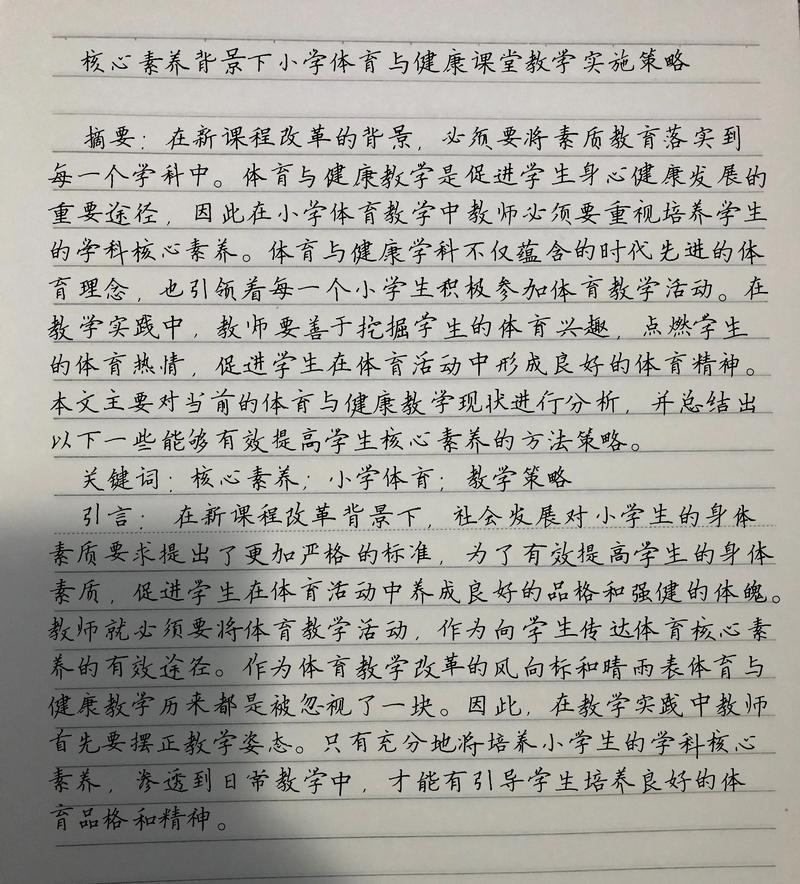 核心素养背景下小学体育与健康课堂教学实施策略
摘要：在新课程改革的背景，必须要将素质教育落实到
每一个学科中。体育与健康教学是促进学生身心健康发展的
重要途径，因此在小学体育教学中教师必须要重视培养学生
的学科核心素养。体育与健康学科不仅蕴含的时代先进的体
育理念，也引领着每一个小学生积极参加体育教学活动。在
教学实践中，教师要善于挖掘学生的体育兴趣，点燃学生
的体育热情，促进学生在体育活动中形成良好的体育精神。
本文主要对当前的体育与健康教学现状进行分析，并总结出
以下一些能够有效提高学生核心素养的方法策略。
关键词：核心素养；小学体育；教学策略
引言：在新课程改革背景下，社会发展对小学生的身体
素质要求提出了更加严格的标准，为了有效提高学生的身体
素质，促进学生在体育活动中养成良好的品格和强健的体魄。
教师就必须要将体育教学活动，作为向学生传达体育核心素
养的有效途径。作为体育教学改革的风向标和晴雨表体育与
健康教学历来都是被忽视了一块。因此，在教学实践中教师
首先要摆正教学姿态。只有充分地将培养小学生的学科核心
素养，渗透到日常教学中，才能有引导学生培养良好的体
育品格和精神。